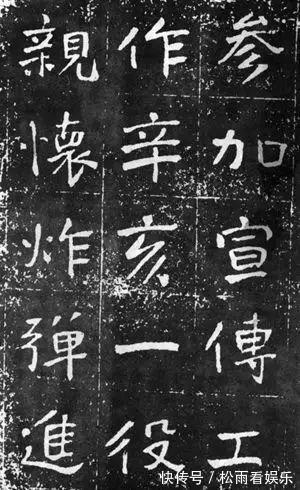 参加宣傳工
作辛亥一役
親懷炸弹進
快传号 / 松雨看娱乐